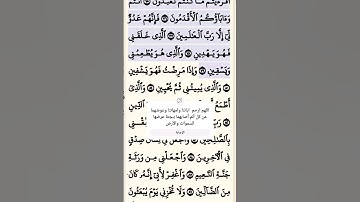 أَفَرَءَيْتُم مَّا كُنتُمْ تَعْبُدُونَ أَنتُمْ
وَءَابَآؤُكُمُ ٱلْأَقْدَمُونَ فَإِنَّهُمْ عَدُوٌّ
لِّىٓ إِلَّا رَبَّ ٱلْعَٰلَمِينَ ٱلَّذِى خَلَقَنِى
فَهُوَ يَهْدِينِ وَٱلَّذِى هُوَ يُطْعِمُنِى
وَيَسْقِينِ وَإِذَا مَرِضْتُ فَهُوَ يَشْفِينِ
وَٱلَّذِى يُمِيتُنِى ثُمَّ يُحْيِينِ وَٱلَّذِىٓ
أَطْمَعُ
اللهم ارحم ابائنا وامهاتنا وعوضهما
عن كل ألم أصابهما بجنة عرضها
السموات والارض
بِٱلصَّٰلِحِينَ وَٱجْعَل لِّى لِسَانَ صِدْقٍ
فِى ٱلْءَاخِرِينَ وَٱجْعَلْنِى مِن وَرَثَةِ
جَنَّةِ ٱلنَّعِيمِ وَٱغْفِرْ لِأَبِىٓ إِنَّهُۥ كَانَ
مِنَ ٱلضَّآلِّينَ وَلَا تُخْزِنِى يَوْمَ يُبْعَثُونَ